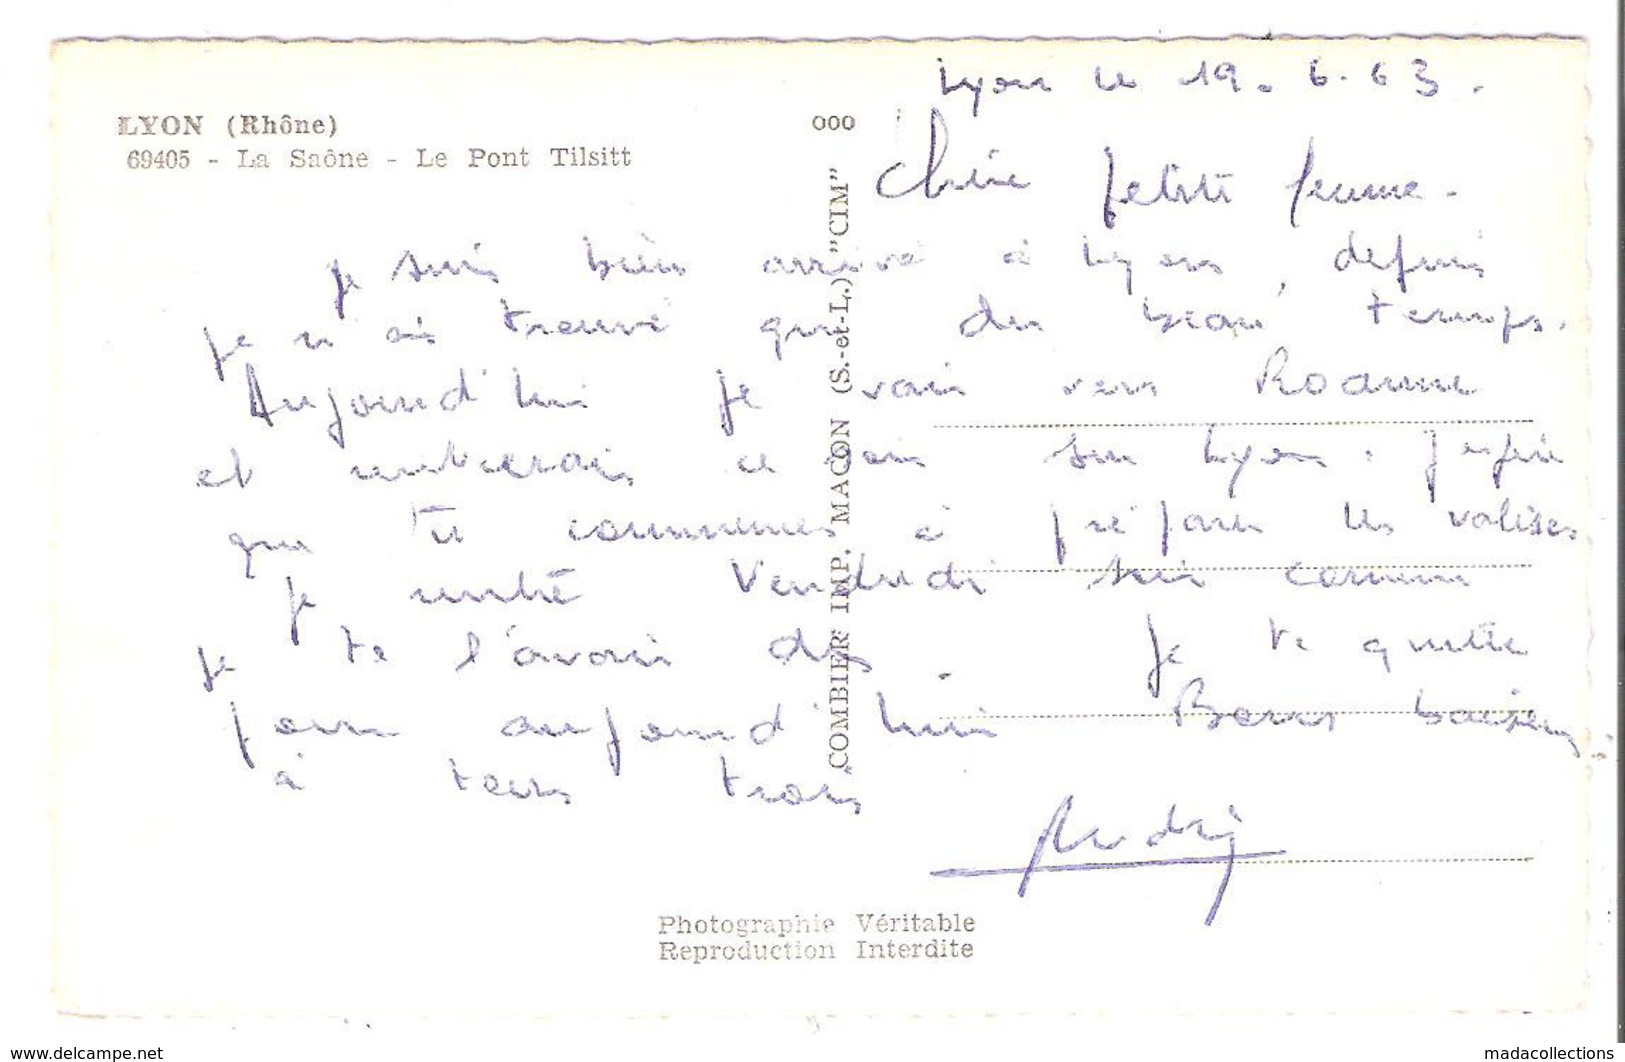 Lyon le 19.6.63.
LYON (Rhône)
69405 - La Saône - Le Pont Tilsitt
000
COMBIER IMP. MACON (S.-et-L.) "CIM"
Chérie petite femme.
Je suis bien arrivé à Lyon, depuis
je n'ais trouvé que du beau temps.
Aujourd'hui je vais vers Roanne
et rentrerais ce soir sur Lyon. J'espère
que tu commences à préparer les valises
Je rentre Vendredi soir comme
je te l'avais dis. Je te quitte
pour aujourd'hui Bons baisers
à tous trois
Photographie Véritable
Reproduction Interdite
www.delcampe.net
madacollections